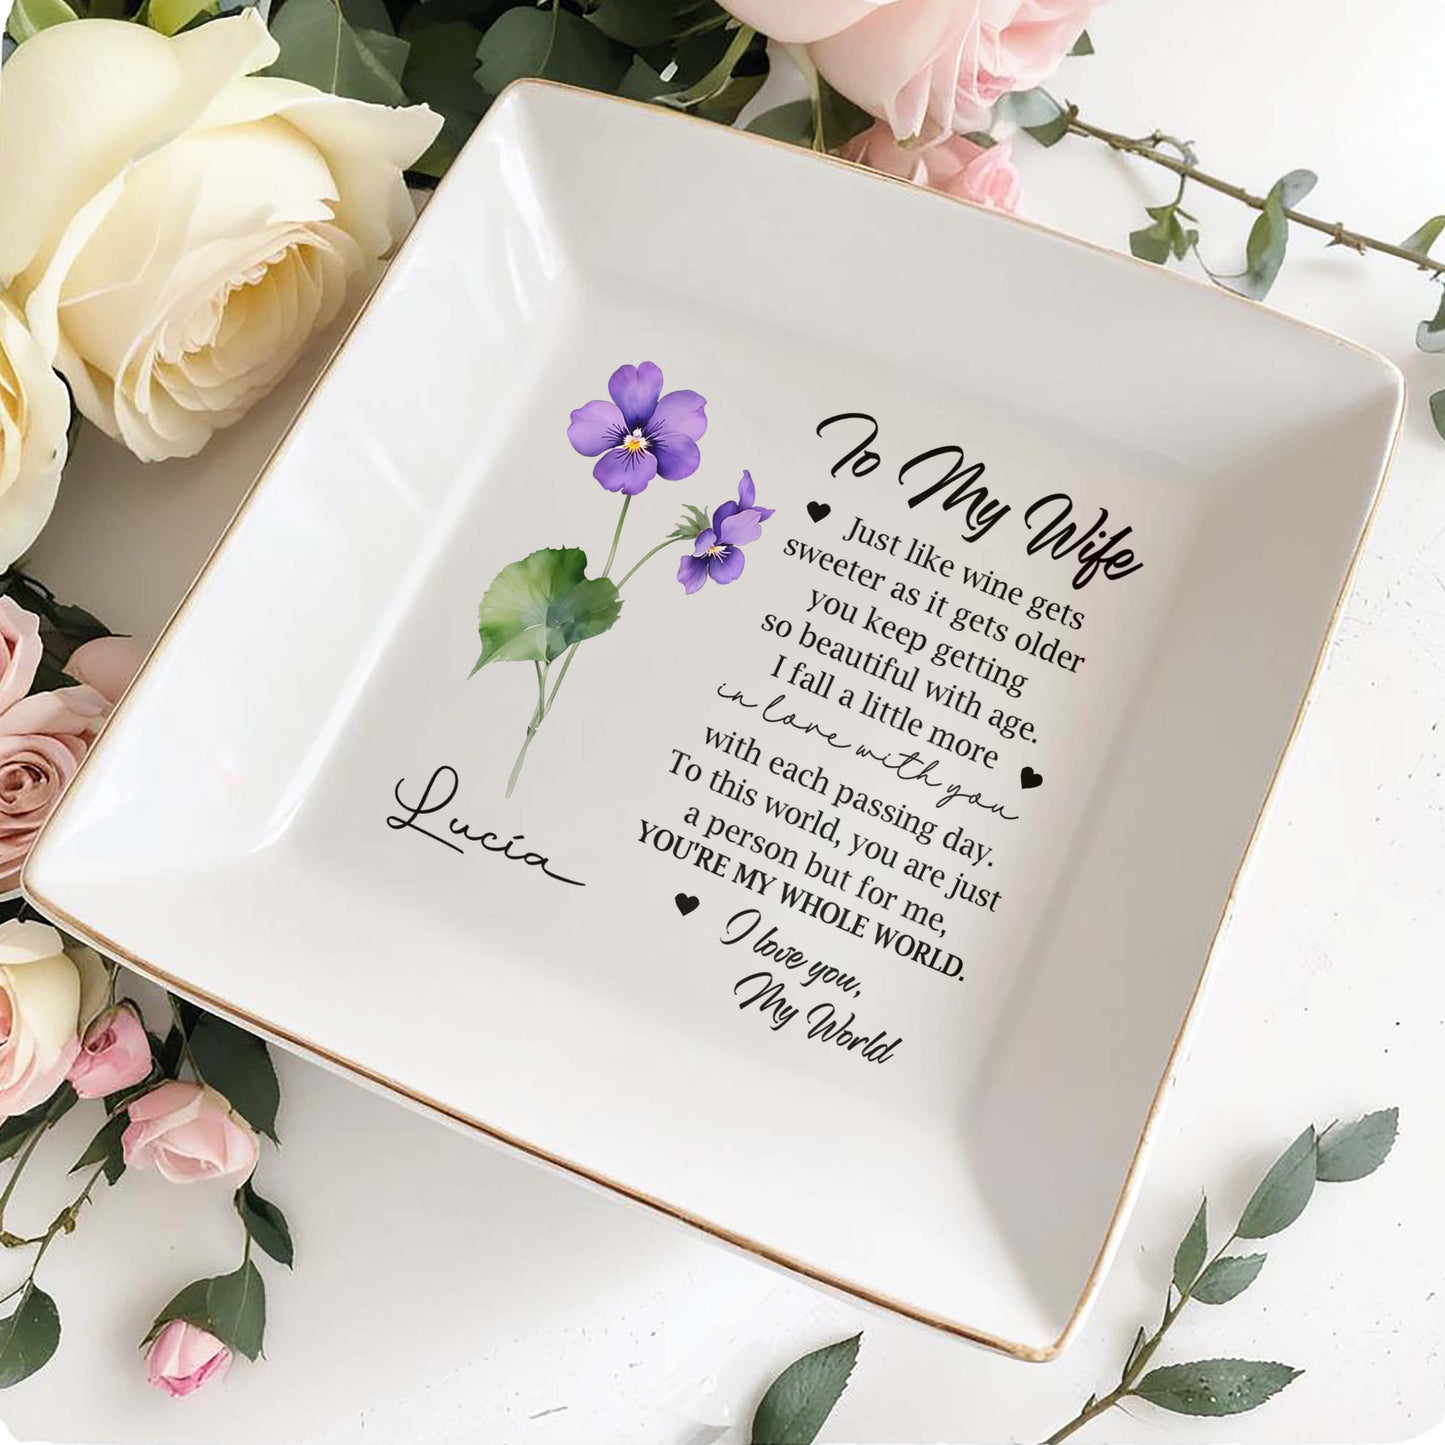 To My Wife
Just like wine gets
sweeter as it gets older
you keep getting
so beautiful with age.
I fall a little more
in love with you
with each passing day.
To this world, you are just
a person but for me,
YOU'RE MY WHOLE WORLD.
I love you,
My World
Lucía